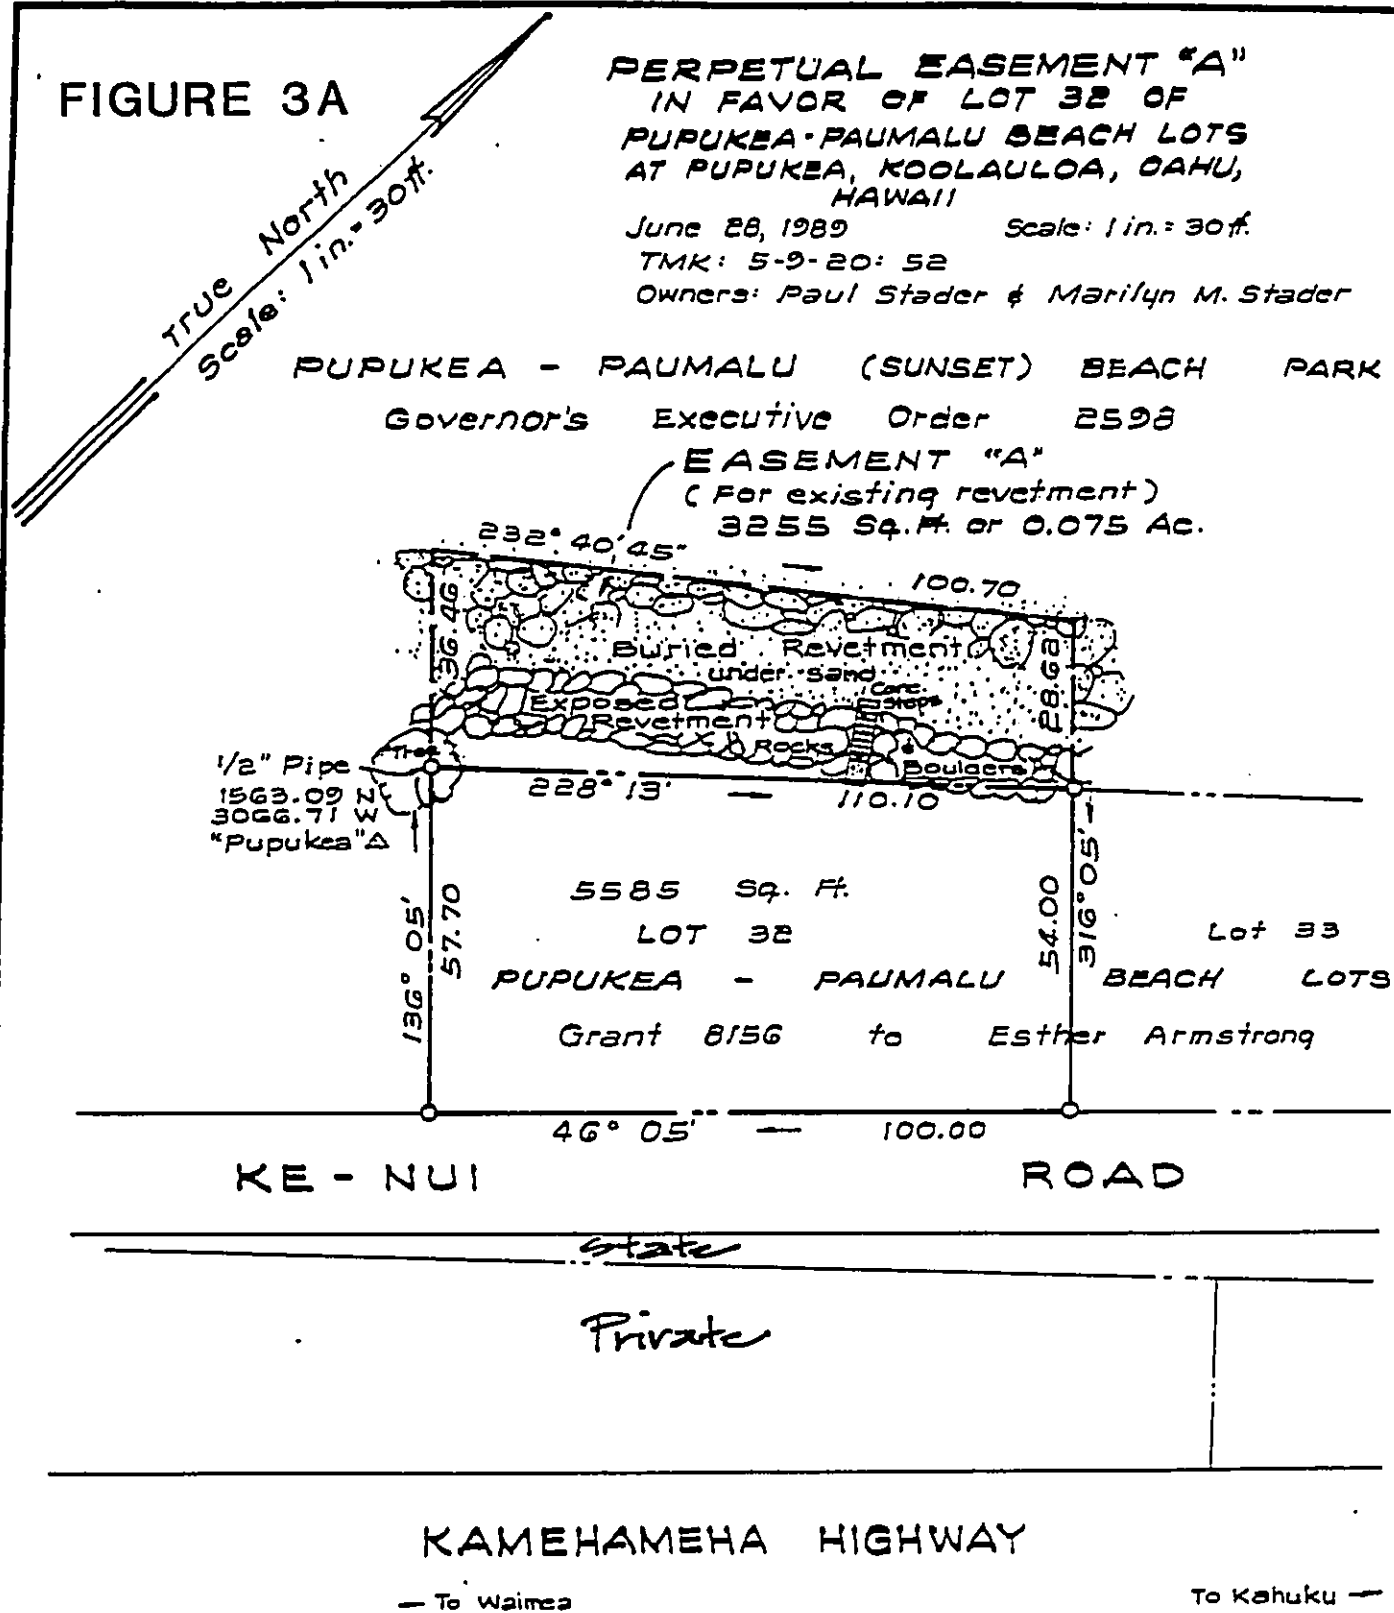 FIGURE 3A
PERPETUAL EASEMENT "A"
IN FAVOR OF LOT 32 OF
PUPUKEA-PAUMALU BEACH LOTS
AT PUPUKEA, KOOLAULOA, OAHU,
HAWAII
June 28, 1989 Scale: 1 in. = 30 ft.
TMK: 5-9-20: 52
Owners: Paul Stader & Marilyn M. Stader
True North
Scale: 1 in. = 30 ft.
PUPUKEA - PAUMALU (SUNSET) BEACH PARK
Governor's Executive Order 2598
EASEMENT "A"
(For existing revetment)
3255 Sq. Ft. or 0.075 Ac.
232° 40' 45" 100.70
36.46
28.62
Buried Revetment
under sand
Conc.
Steps
Exposed
Revetment
Rocks &
Boulders
Tree
1/2" Pipe
1563.09 N
3066.71 W
"Pupukea" Δ
228° 13' 110.10
136° 05'
57.70
54.00
316° 05'
5585 Sq. Ft.
LOT 32
Lot 33
PUPUKEA - PAUMALU BEACH LOTS
Grant 8156 to Esther Armstrong
46° 05' 100.00
KE - NUI ROAD
State
Private
KAMEHAMEHA HIGHWAY
To Waimea To Kahuku